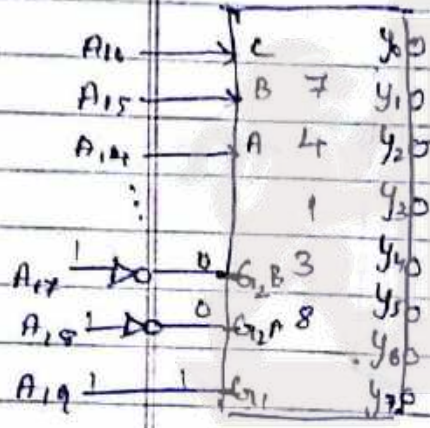 A16 C y0
A15 B 7 y1
A14 A 4 y2
1 y3
A17 1 0 G2B 3 y4
y5
A18 1 0 G2A 8
y6
A19 1 1 G1 y7